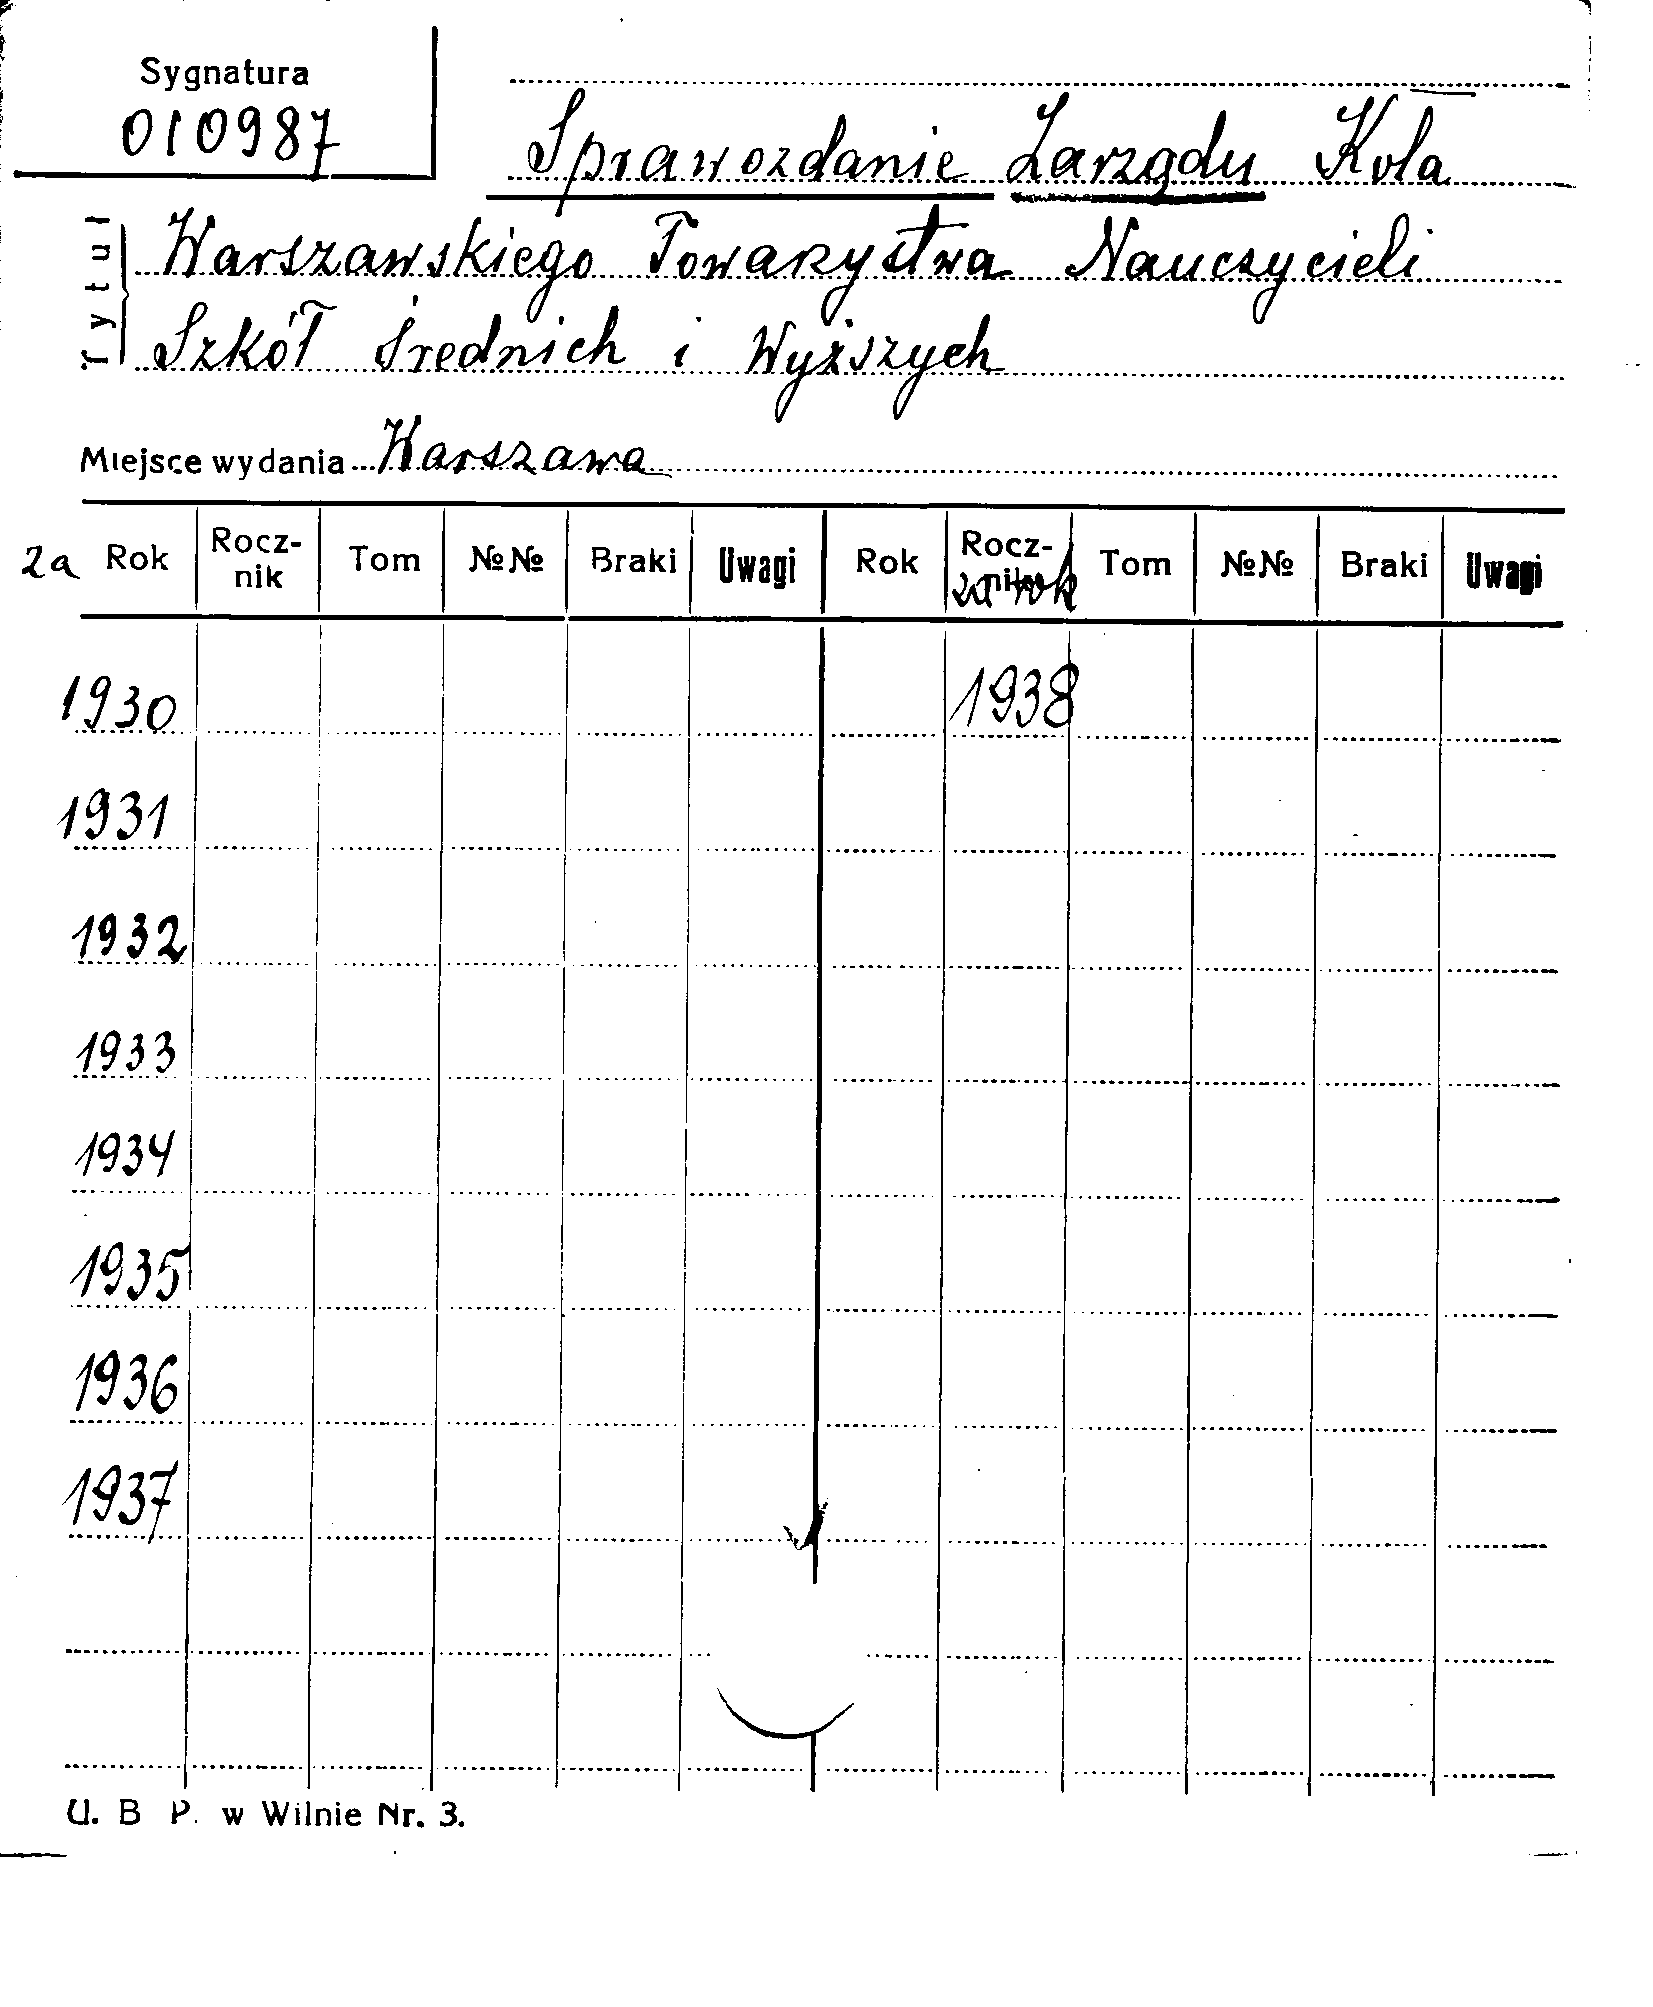 Sygnatura
010987
Sprawozdanie Zarządu Koła
Tytuł
Warszawskiego Towarzystwa Nauczycieli
Szkół Średnich i Wyższych
Miejsce wydania Warszawa
za Rok Rocz- nik Tom №№ Braki Uwagi Rok Rocz- nik za rok Tom №№ Braki Uwagi
1930 1938
1931
1932
1933
1934
1935
1936
1937
U. B P. w Wilnie Nr. 3.